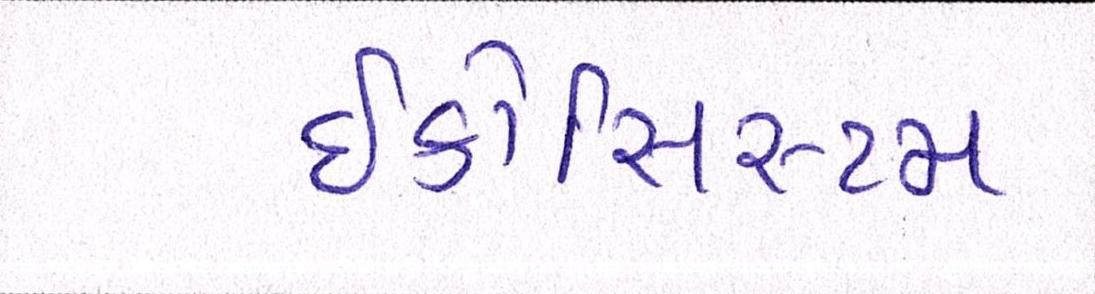 ઈકોસિસ્ટમ